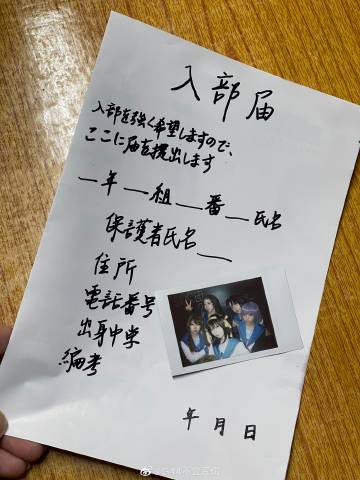 入部届
入部を強く希望しますので、
ここに届を提出します
年 組 番 氏名
保護者氏名
住所
電話番号
出身中学
編考
年 月 日